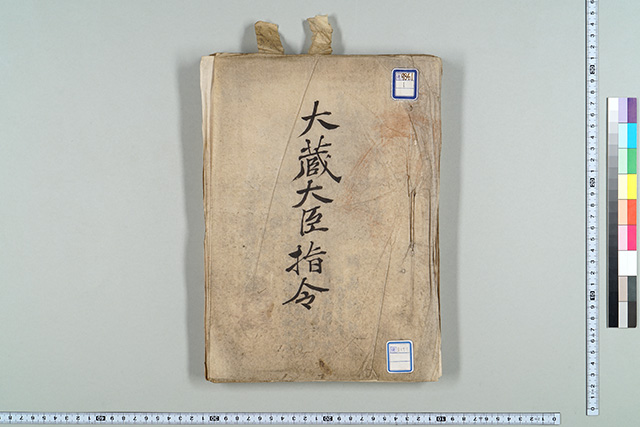 大蔵大臣指令